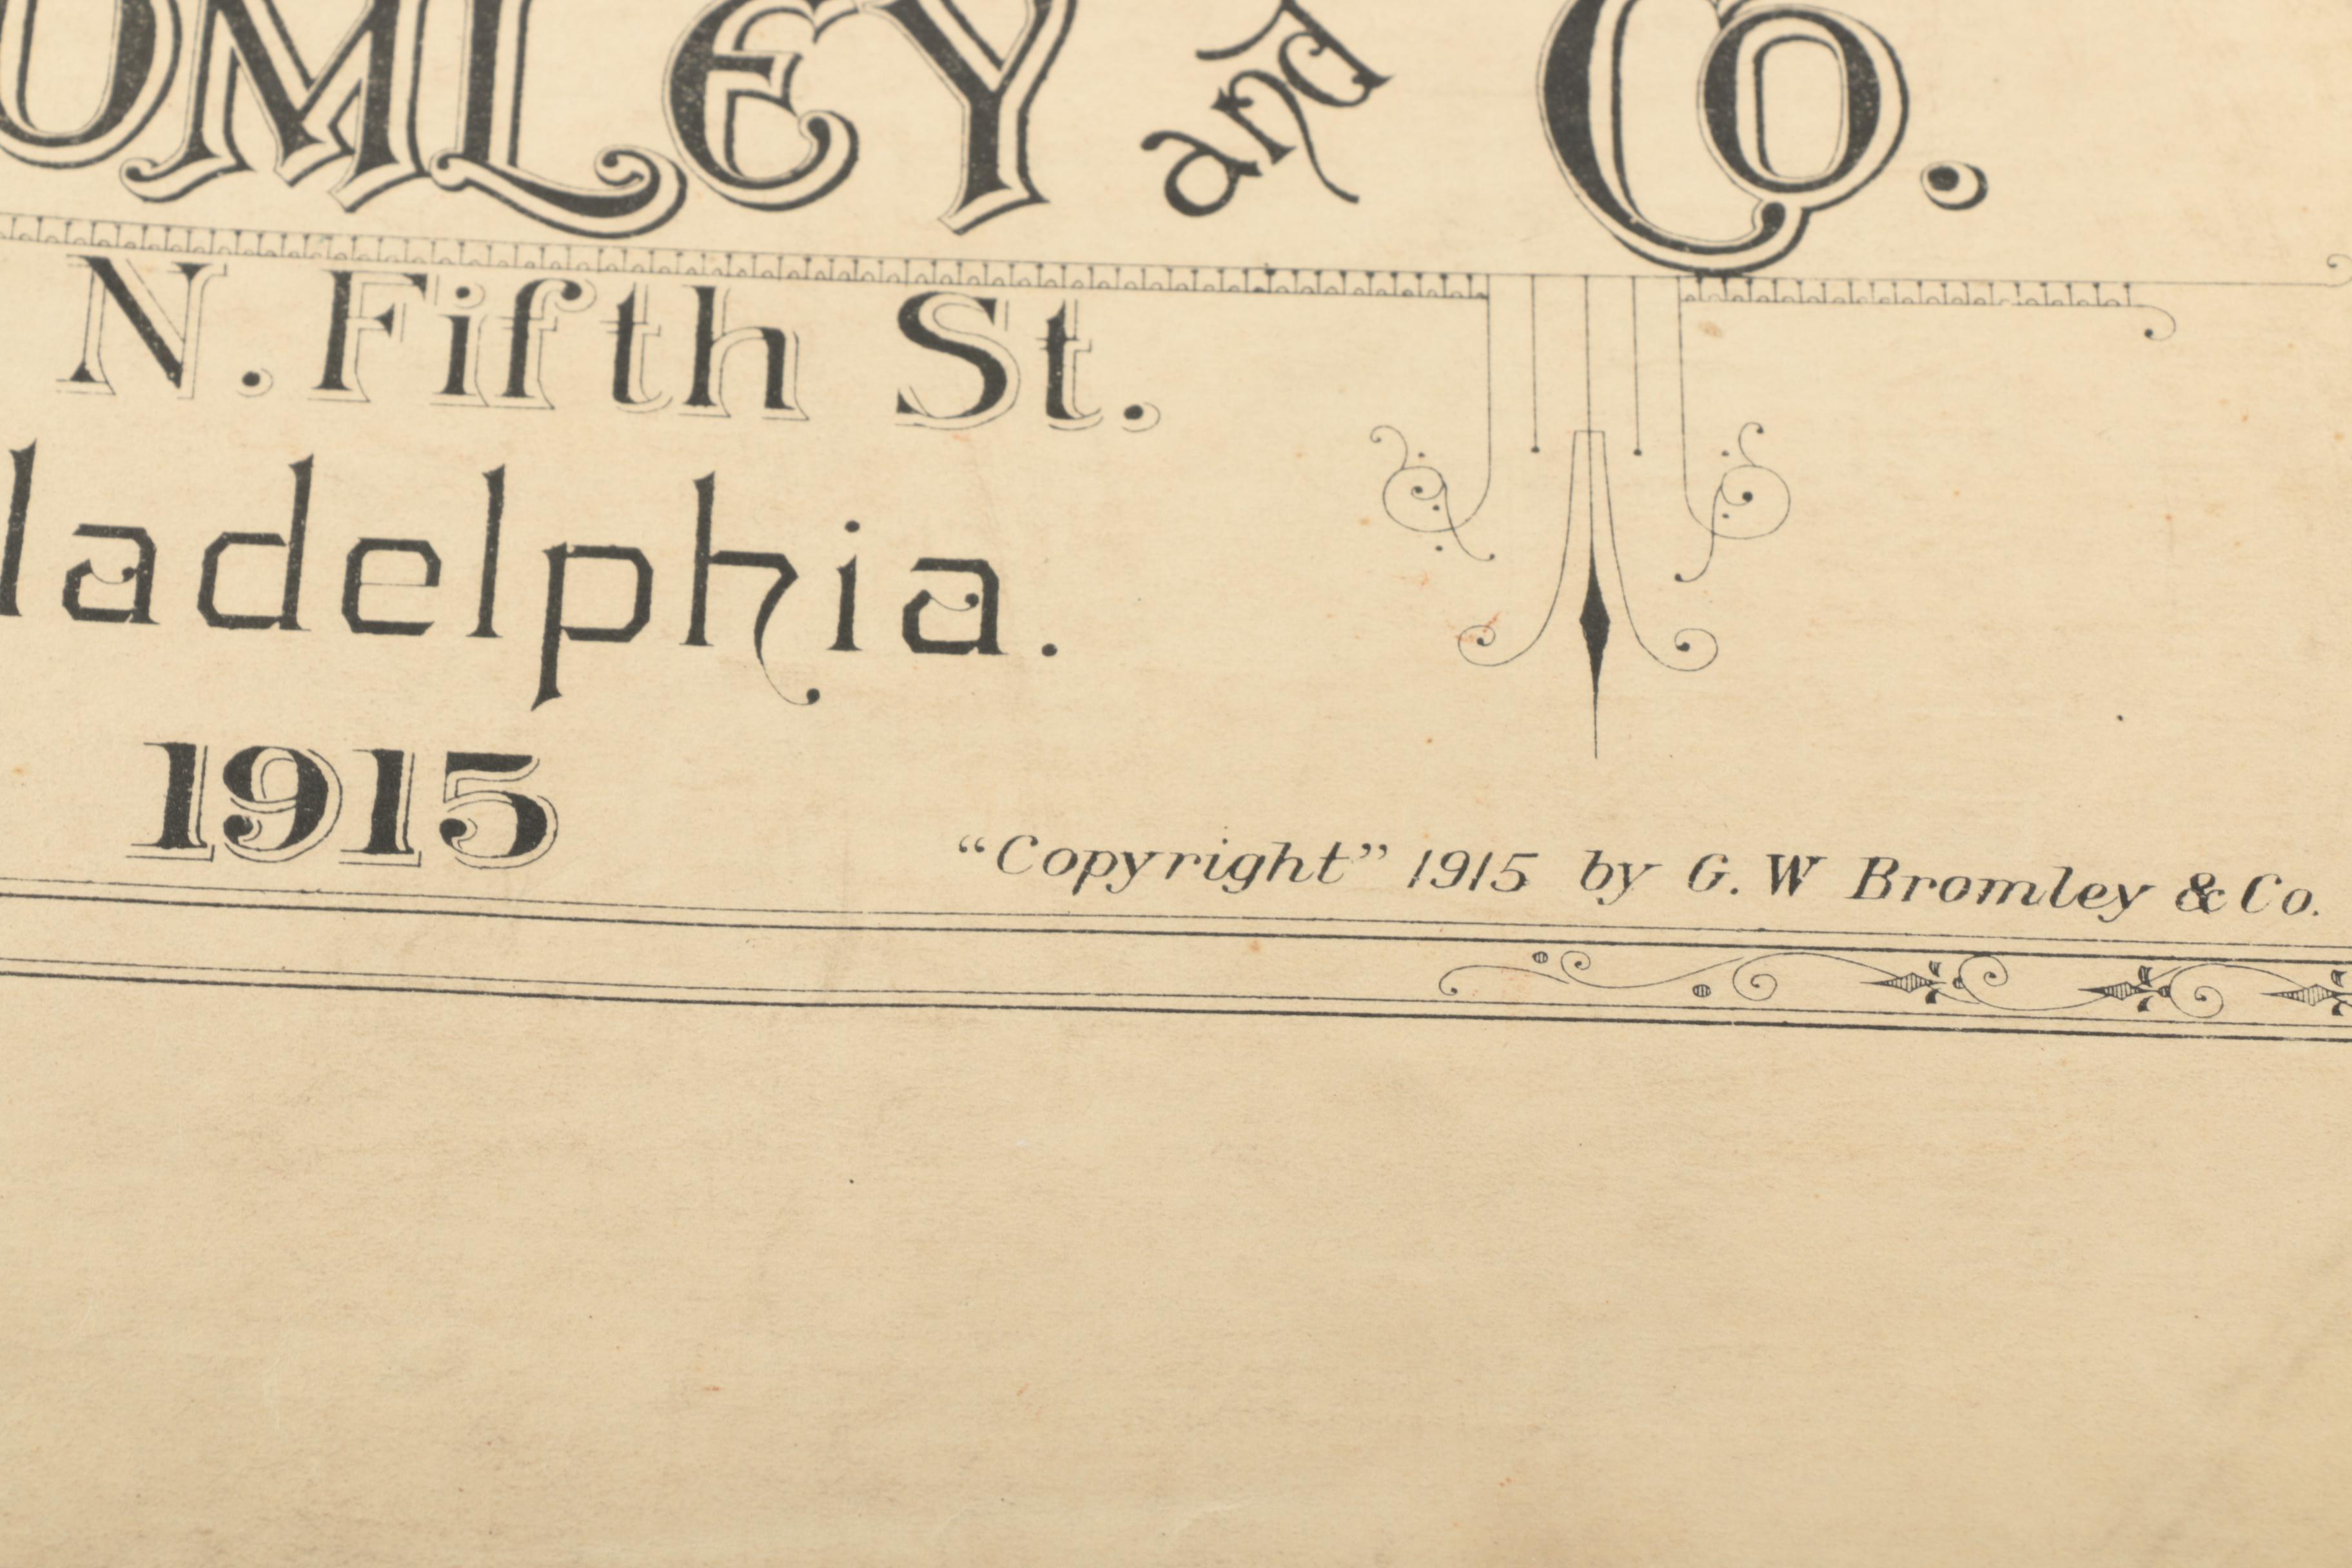 OMLEY and Co.
N. Fifth St.
ladelphia.
1915
"Copyright" 1915 by G. W Bromley & Co.